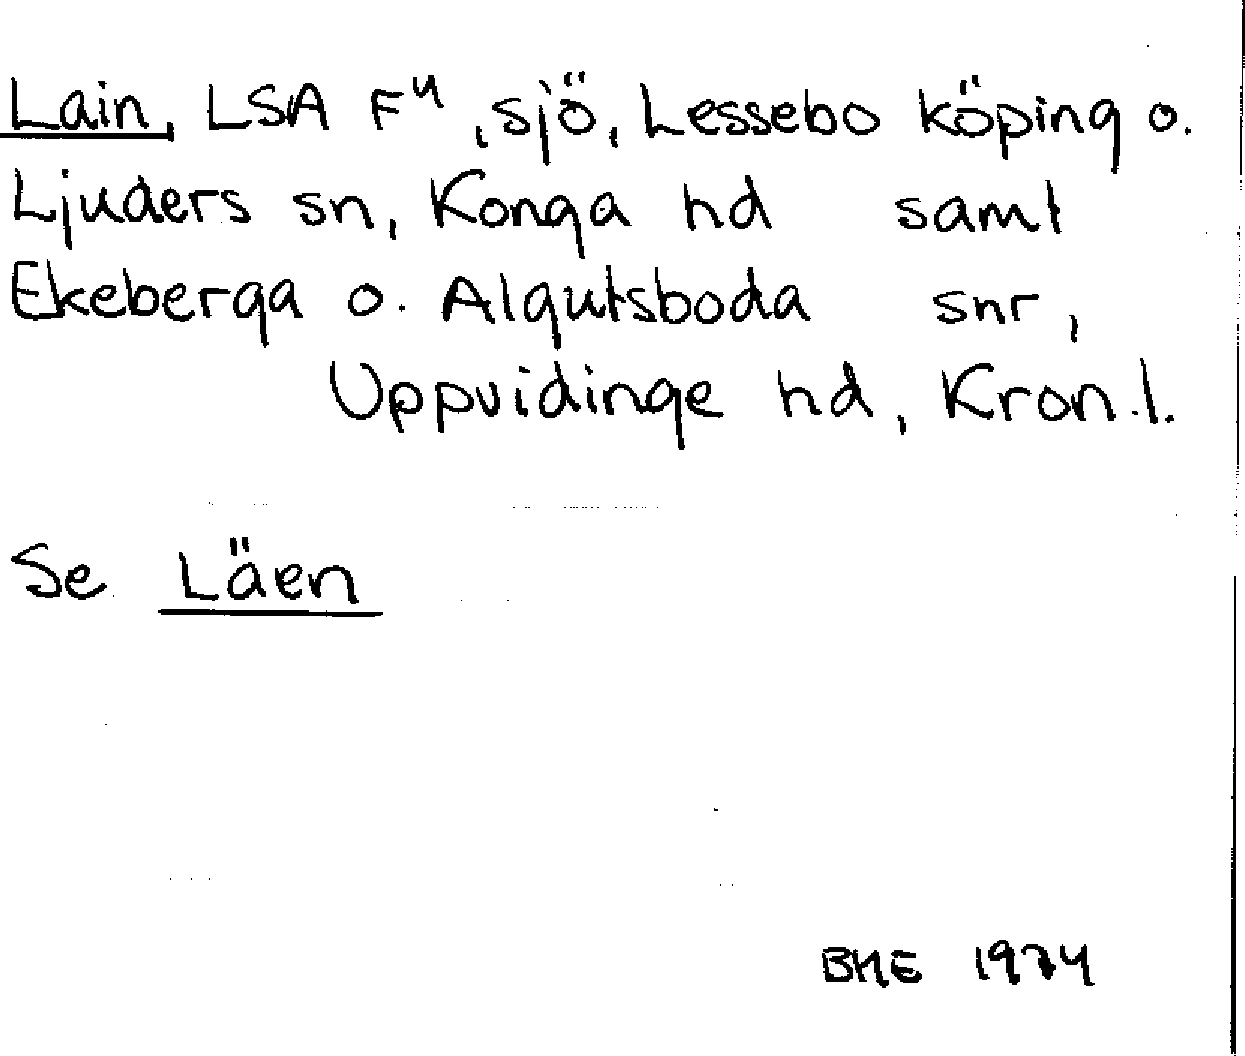 Lain, LSA F⁴, sjö, Lessebo köping o.
Ljuders sn, Konga hd samt
Ekeberga o. Algutsboda snr,
Uppvidinge hd, Kron.l.
Se Läen
BHE 1974